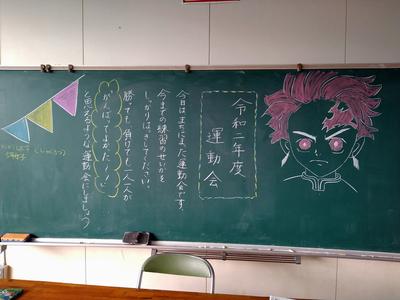 令和二年度
運動会
今日は、まちにまった運動会です。
今までの練習のせいかを
しっかりはっきしてください。
勝っても、負けても、一人一人が
「がんばってよかった！！」
と思えるような運動会にしましょう